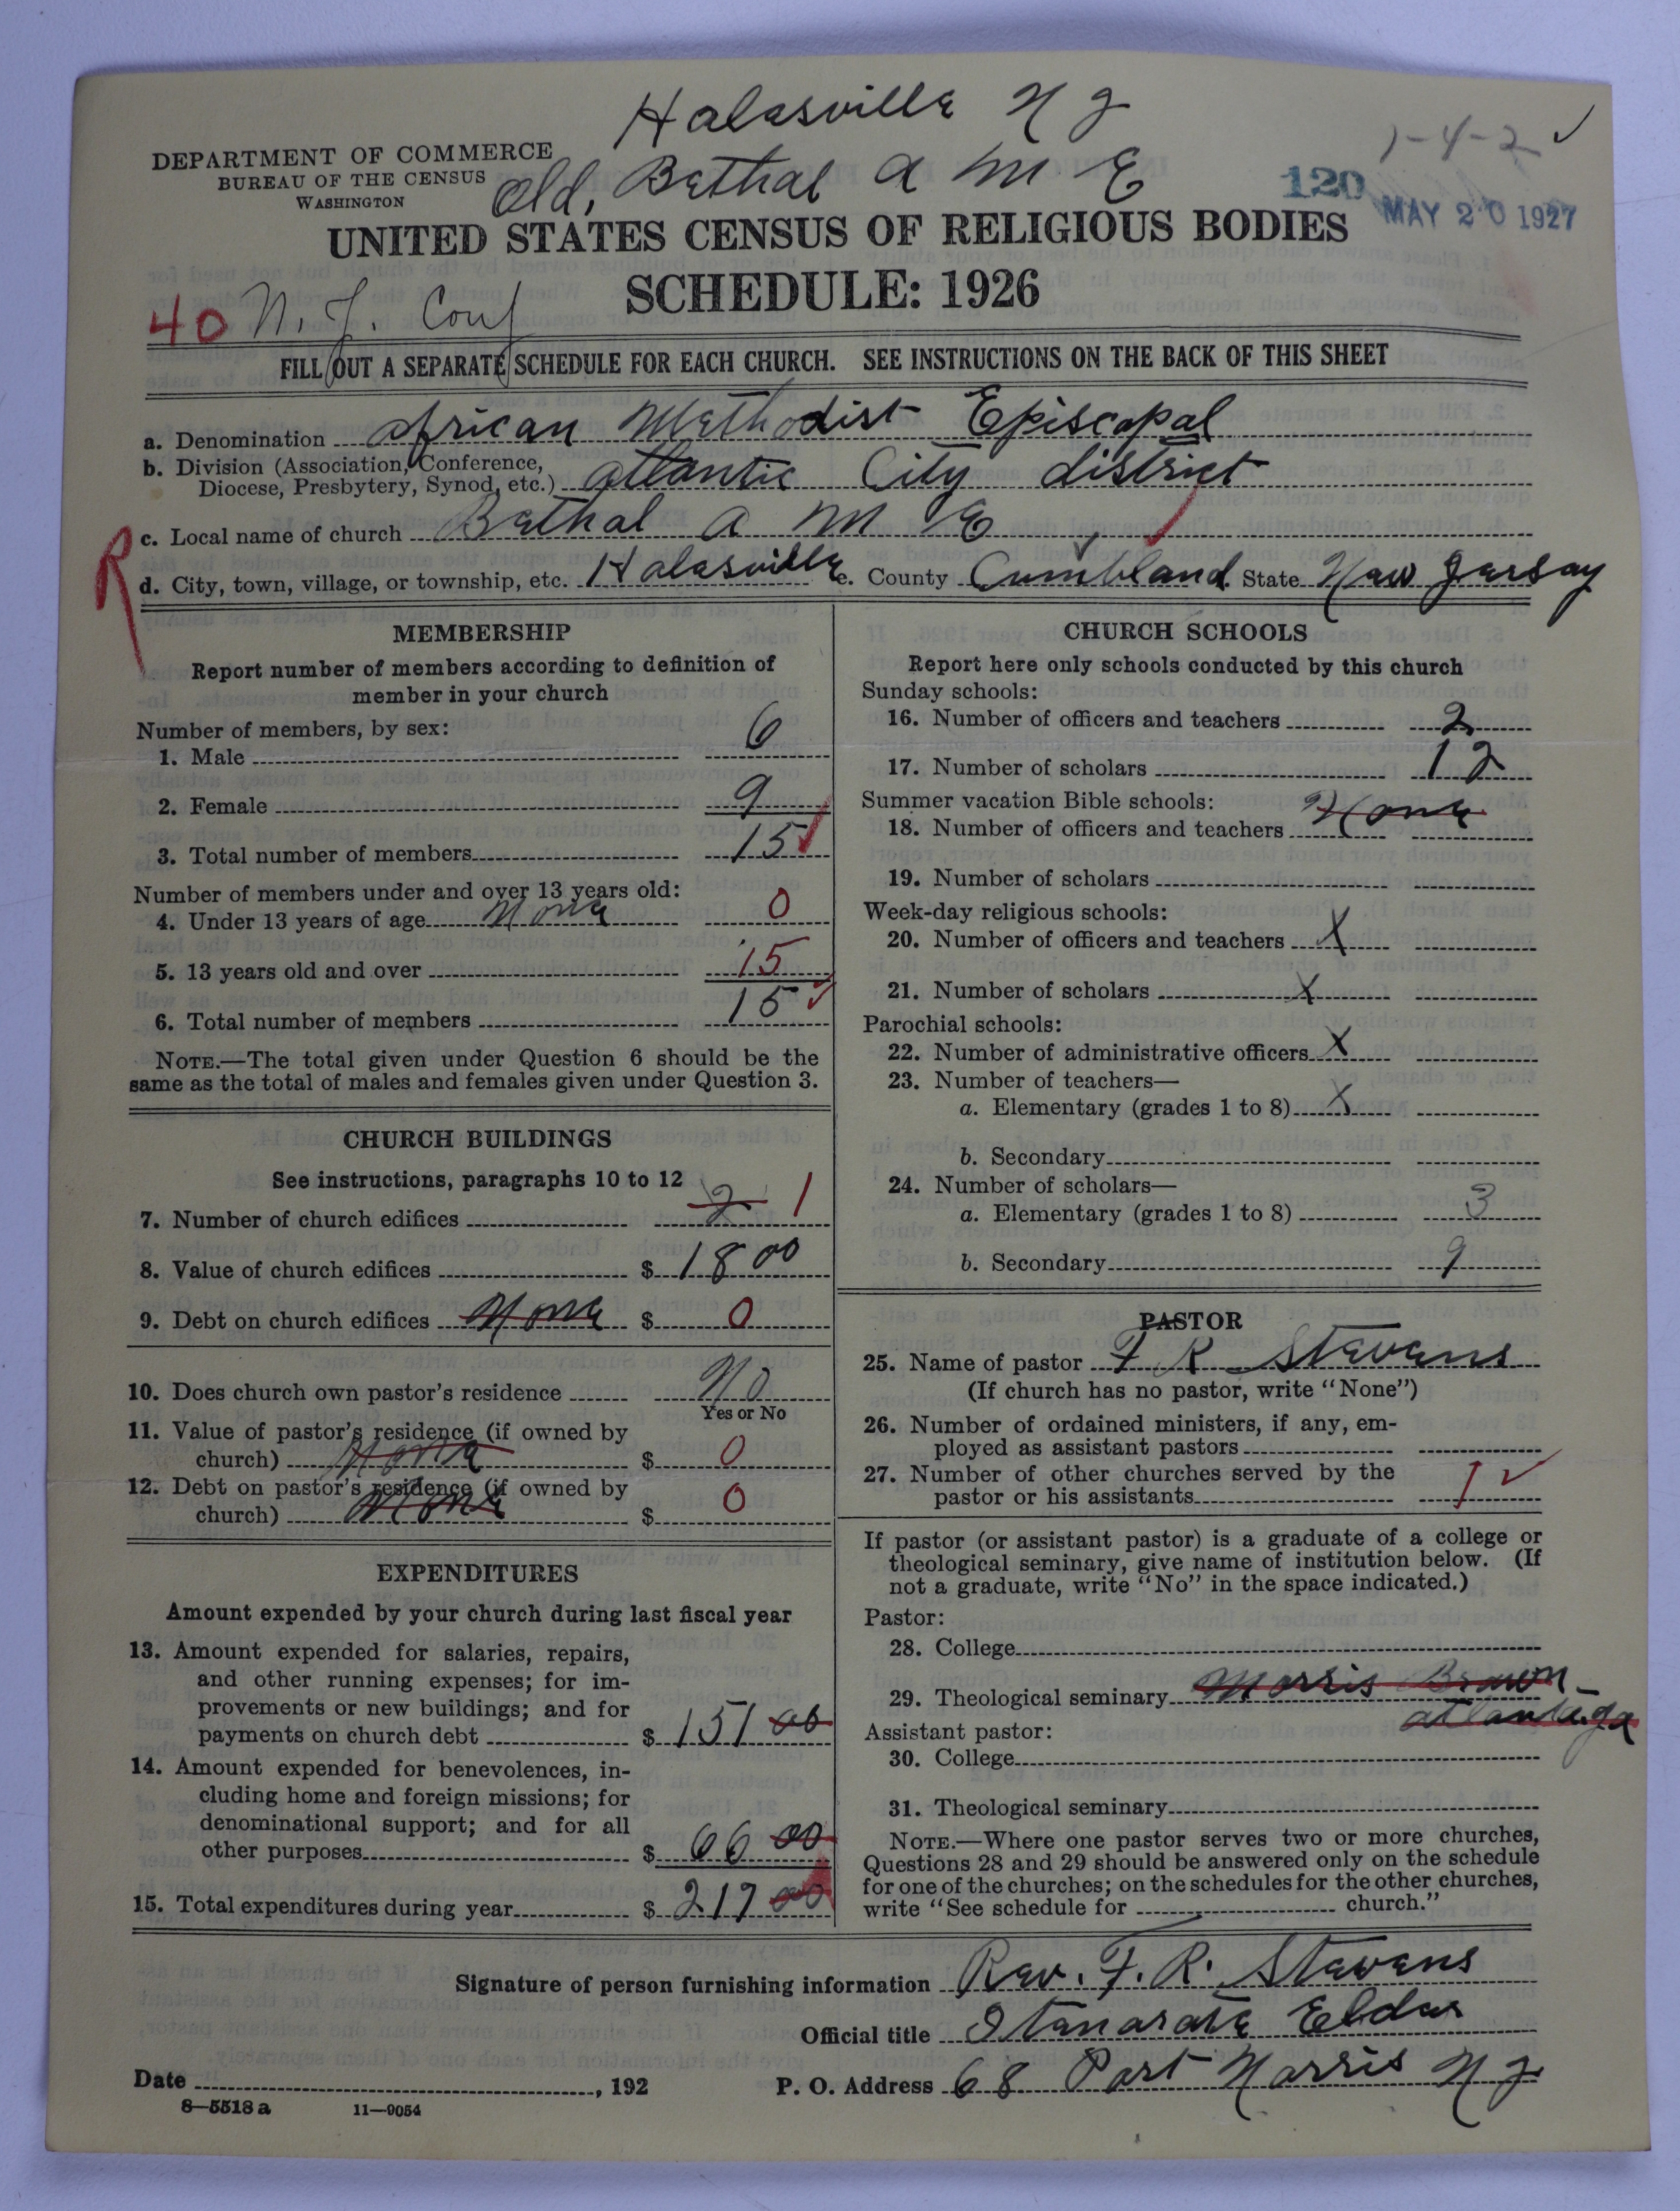 Halesville N J
DEPARTMENT OF COMMERCE
BUREAU OF THE CENSUS
WASHINGTON
Old, Bethel A M E
1-4-2 ✓
120
MAY 20 1927
UNITED STATES CENSUS OF RELIGIOUS BODIES
SCHEDULE: 1926
40 N. J. Conf
FILL OUT A SEPARATE SCHEDULE FOR EACH CHURCH. SEE INSTRUCTIONS ON THE BACK OF THIS SHEET
a. Denomination African Methodist Episcopal
b. Division (Association, Conference,
Diocese, Presbytery, Synod, etc.) Atlantic City district
c. Local name of church Bethel A M E
R
d. City, town, village, or township, etc. Halesville e. County Cumbland State New Jersey
MEMBERSHIP
Report number of members according to definition of
member in your church
Number of members, by sex:
1. Male 6
2. Female 9
3. Total number of members 15 ✓
Number of members under and over 13 years old:
4. Under 13 years of age None 0
5. 13 years old and over 15
6. Total number of members 15 ✓
NOTE.—The total given under Question 6 should be the
same as the total of males and females given under Question 3.
CHURCH BUILDINGS
See instructions, paragraphs 10 to 12
7. Number of church edifices 2 1
8. Value of church edifices $ 1800
9. Debt on church edifices None $ 0
10. Does church own pastor's residence No
Yes or No
11. Value of pastor's residence (if owned by
church) None $ 0
12. Debt on pastor's residence (if owned by
church) None $ 0
EXPENDITURES
Amount expended by your church during last fiscal year
13. Amount expended for salaries, repairs,
and other running expenses; for im-
provements or new buildings; and for
payments on church debt $ 151 00
14. Amount expended for benevolences, in-
cluding home and foreign missions; for
denominational support; and for all
other purposes $ 66 00
15. Total expenditures during year $ 217 00
CHURCH SCHOOLS
Report here only schools conducted by this church
Sunday schools:
16. Number of officers and teachers 2
17. Number of scholars 12
Summer vacation Bible schools:
18. Number of officers and teachers None
19. Number of scholars
Week-day religious schools:
20. Number of officers and teachers X
21. Number of scholars X
Parochial schools:
22. Number of administrative officers X
23. Number of teachers—
a. Elementary (grades 1 to 8) X
b. Secondary
24. Number of scholars—
a. Elementary (grades 1 to 8) 3
b. Secondary 9
PASTOR
25. Name of pastor F R Stevens
(If church has no pastor, write "None")
26. Number of ordained ministers, if any, em-
ployed as assistant pastors
27. Number of other churches served by the
pastor or his assistants 1 ✓
If pastor (or assistant pastor) is a graduate of a college or
theological seminary, give name of institution below. (If
not a graduate, write "No" in the space indicated.)
Pastor:
28. College
29. Theological seminary Morris Brown -
Atlanta. ga
Assistant pastor:
30. College
31. Theological seminary
NOTE.—Where one pastor serves two or more churches,
Questions 28 and 29 should be answered only on the schedule
for one of the churches; on the schedules for the other churches,
write "See schedule for church."
Signature of person furnishing information Rev. F. R. Stevens
Official title Itenarate Elder
Date , 192
P. O. Address 68 Port Norris N J
8—5518 a 11—9054